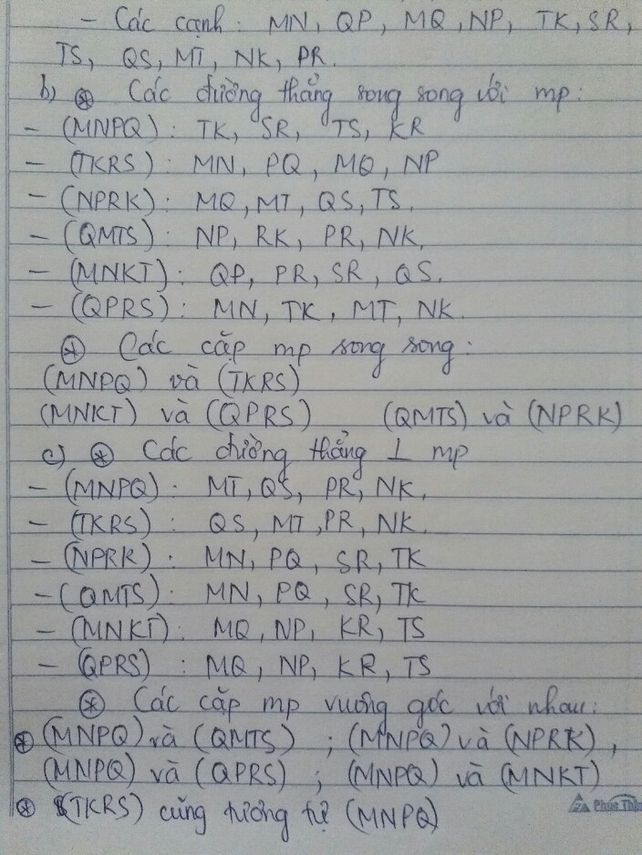 - Các cạnh : MN, QP, MQ, NP, TK, SR,
TS, QS, MT, NK, PR.
b) * Các đường thẳng song song với mp:
- (MNPQ) : TK, SR, TS, KR
- (TKRS) : MN, PQ, MQ, NP
- (NPRK) : MQ, MT, QS, TS.
- (QMTS) : NP, RK, PR, NK.
- (MNKT) : QP, PR, SR, QS.
- (QPRS) : MN, TK, MT, NK.
* Các cặp mp song song:
(MNPQ) và (TKRS)
(MNKT) và (QPRS) (QMTS) và (NPRK)
c) * Các đường thẳng ⊥ mp
- (MNPQ) : MT, QS, PR, NK.
- (TKRS) : QS, MT, PR, NK.
- (NPRK) : MN, PQ, SR, TK
- (QMTS) : MN, PQ, SR, TK
- (MNKT) : MQ, NP, KR, TS
- (QPRS) : MQ, NP, KR, TS
* Các cặp mp vuông góc với nhau:
* (MNPQ) và (QMTS) ; (MNPQ) và (NPRK),
(MNPQ) và (QPRS) ; (MNPQ) và (MNKT)
* (TKRS) cũng tương tự (MNPQ)